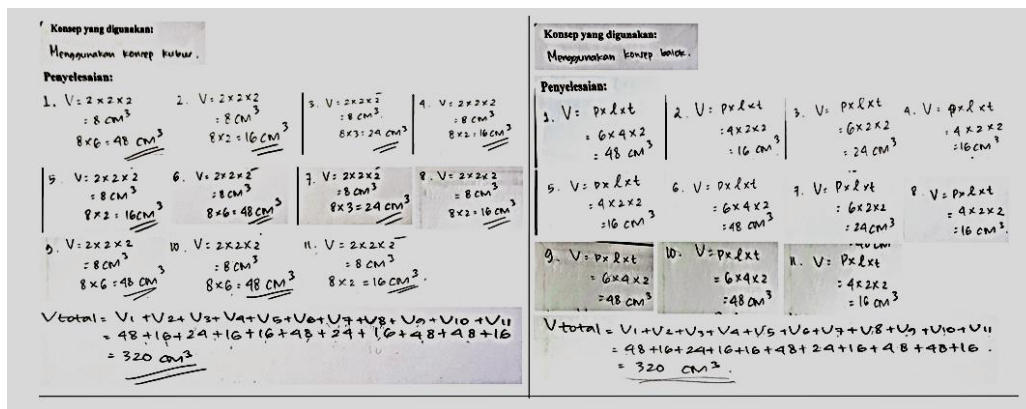 Konsep yang digunakan:
Menggunakan konsep kubus.
Penyelesaian:
1. V = 2 x 2 x 2
= 8 cm³
8 x 6 = 48 cm³
2. V = 2 x 2 x 2
= 8 cm³
8 x 2 = 16 cm³
3. V = 2 x 2 x 2
= 8 cm³
8 x 3 = 24 cm³
4. V = 2 x 2 x 2
= 8 cm³
8 x 2 = 16 cm³
5. V = 2 x 2 x 2
= 8 cm³
8 x 2 = 16 cm³
6. V = 2 x 2 x 2
= 8 cm³
8 x 6 = 48 cm³
7. V = 2 x 2 x 2
= 8 cm³
8 x 3 = 24 cm³
8. V = 2 x 2 x 2
= 8 cm³
8 x 2 = 16 cm³
9. V = 2 x 2 x 2
= 8 cm³
8 x 6 = 48 cm³
10. V = 2 x 2 x 2
= 8 cm³
8 x 6 = 48 cm³
11. V = 2 x 2 x 2
= 8 cm³
8 x 2 = 16 cm³.
V total = V1 + V2 + V3 + V4 + V5 + V6 + V7 + V8 + V9 + V10 + V11
= 48 + 16 + 24 + 16 + 16 + 48 + 24 + 16 + 48 + 48 + 16
= 320 cm³
Konsep yang digunakan:
Menggunakan konsep balok.
Penyelesaian:
1. V = p x l x t
= 6 x 4 x 2
= 48 cm³
2. V = p x l x t
= 4 x 2 x 2
= 16 cm³
3. V = p x l x t
= 6 x 2 x 2
= 24 cm³
4. V = p x l x t
= 4 x 2 x 2
= 16 cm³
5. V = p x l x t
= 4 x 2 x 2
= 16 cm³
6. V = p x l x t
= 6 x 4 x 2
= 48 cm³
7. V = p x l x t
= 6 x 2 x 2
= 24 cm³
8. V = p x l x t
= 4 x 2 x 2
= 16 cm³.
9. V = p x l x t
= 6 x 4 x 2
= 48 cm³
10. V = p x l x t
= 6 x 4 x 2
= 48 cm³
11. V = p x l x t
= 4 x 2 x 2
= 16 cm³
V total = V1 + V2 + V3 + V4 + V5 + V6 + V7 + V8 + V9 + V10 + V11
= 48 + 16 + 24 + 16 + 16 + 48 + 24 + 16 + 48 + 48 + 16.
= 320 cm³.